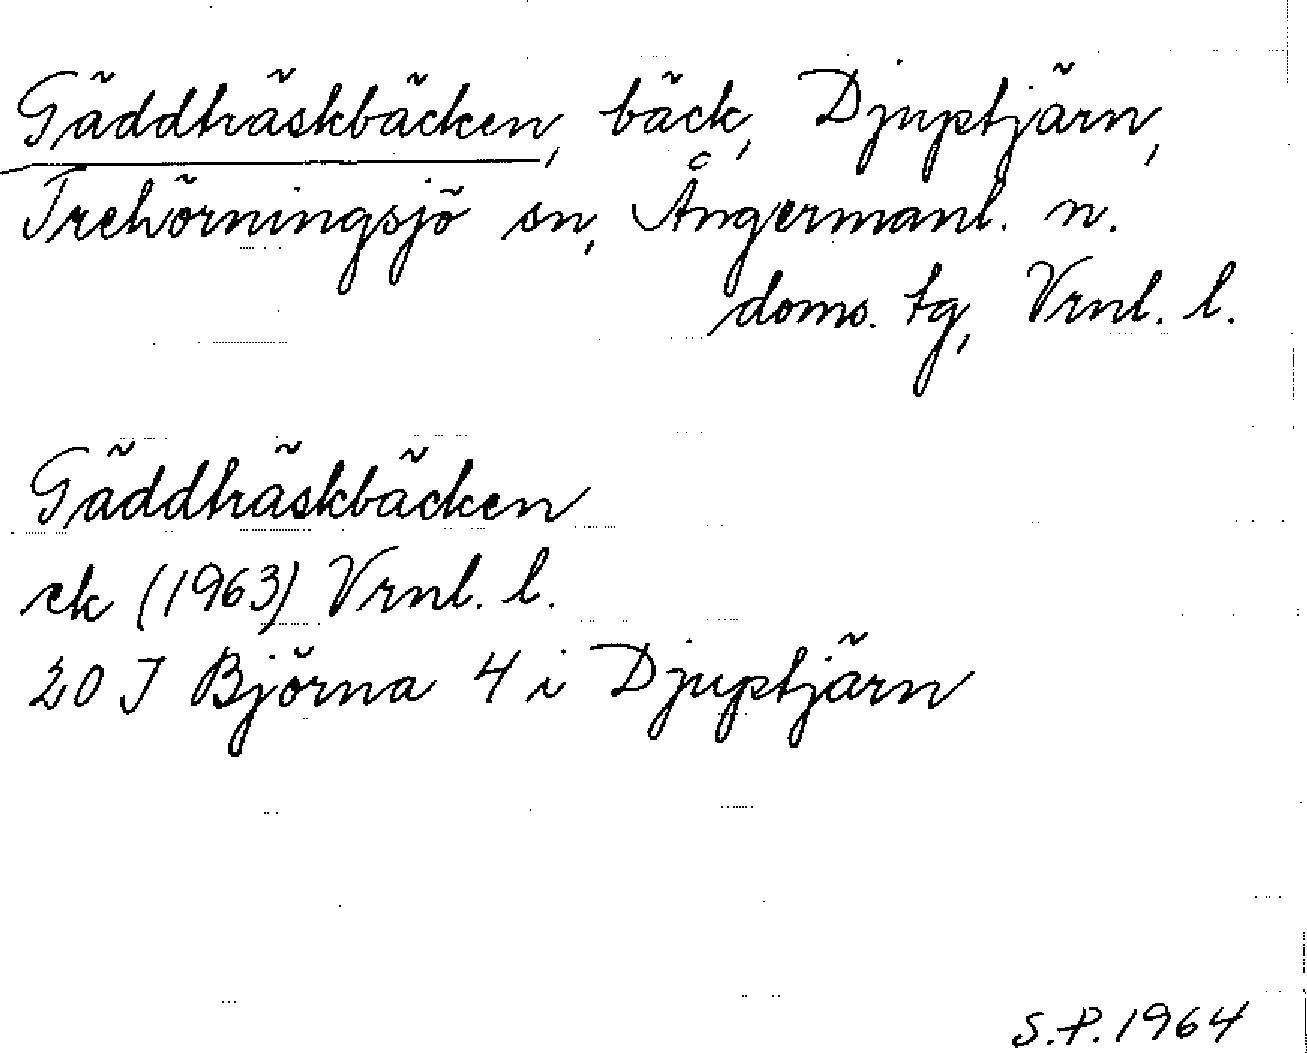 Gäddträskbäcken, bäck, Djuptjärn,
Trehörningsjö sn, Ångermanl. n.
doms. tg, Vrnl. l.
Gäddträskbäcken
ek (1963) Vrnl. l.
20 J Björna 4 i Djuptjärn
S.P. 1964